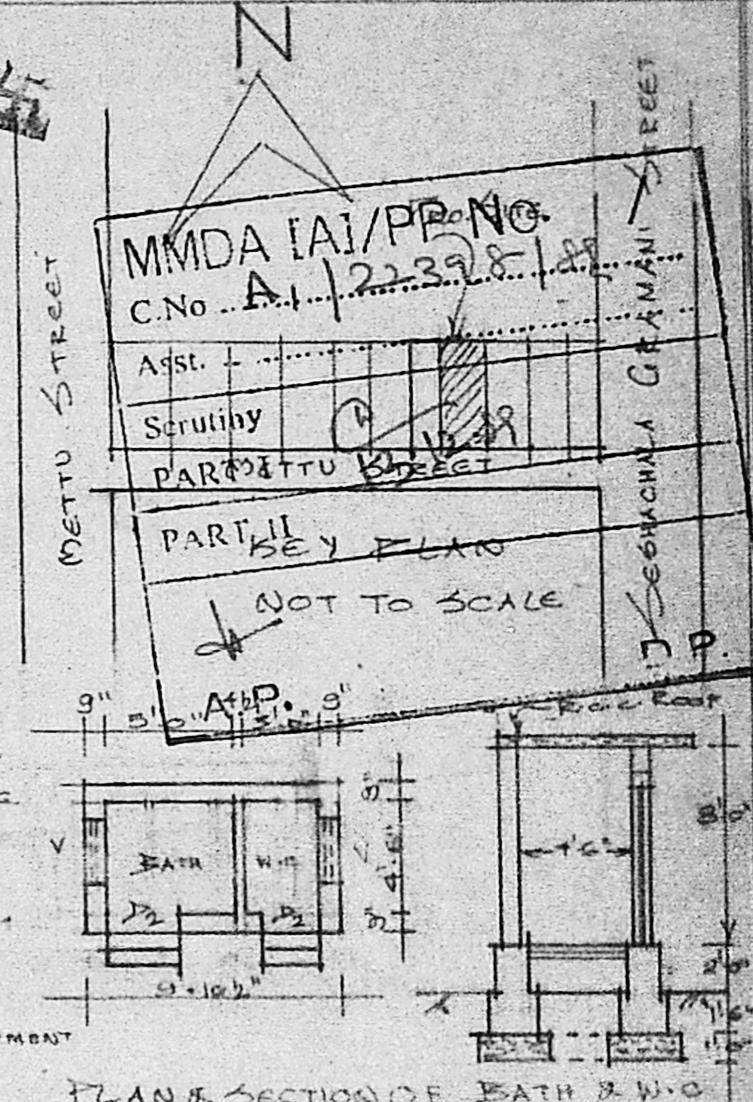 N
METTU STREET
SESHACHALA GRAMANI STREET
MMDA [A]/PP No.
C.No
Asst.
Scrutiny
PART I
METTU STREET
PART II
KEY PLAN
NOT TO SCALE
A.P.
D.P.
9" 5'0" 9"
R.C.C. ROOF
BATH W.C
V
D2 D2
9" 4'.6" 9"
9'-10½"
4'6"
8'0"
2'0"
1'6"
1'0"
PLAN & SECTION OF BATH & W.C